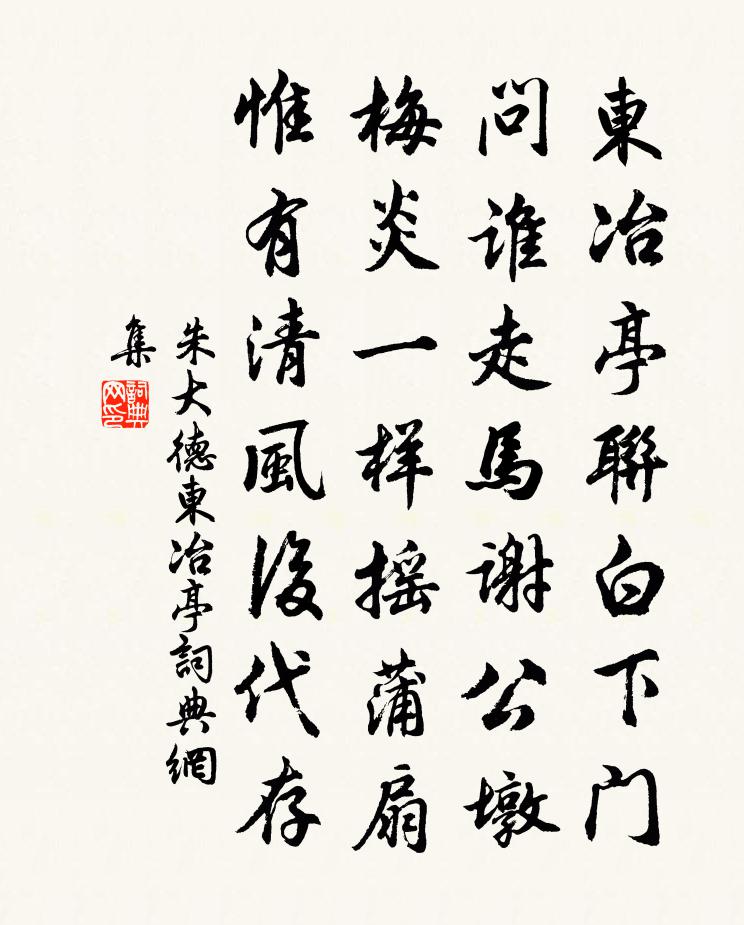 東冶亭聯白下門
問誰走馬謝公墩
梅炎一样摇蒲扇
惟有清風後代存
朱大德東冶亭詞典網
集
詞典
网印